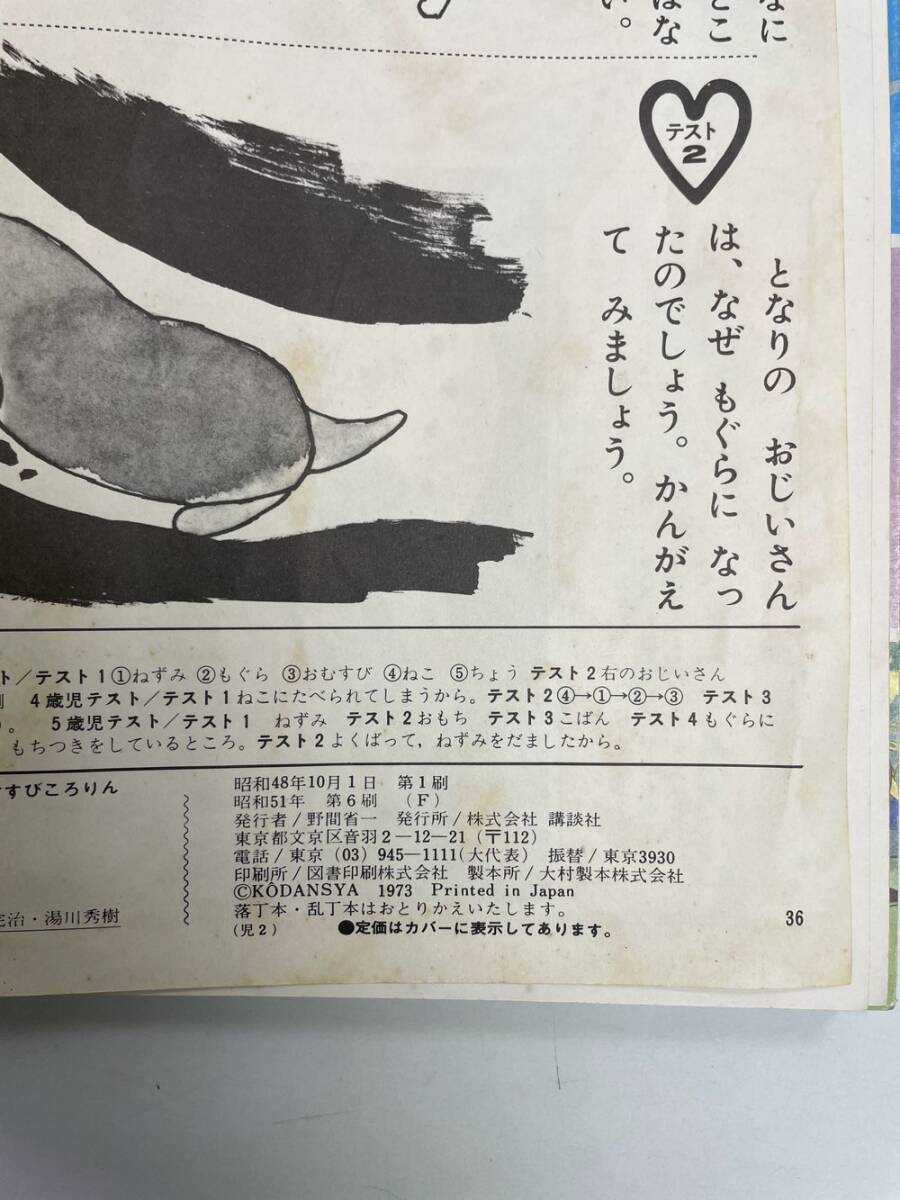 なに
とこ
はな
い。
テスト
2
となりの おじいさん
は、なぜ もぐらに なっ
たのでしょう。かんがえ
て みましょう。
ト／テスト1①ねずみ ②もぐら ③おむすび ④ねこ ⑤ちょう テスト2右のおじいさん
4歳児テスト／テスト1ねこにたべられてしまうから。テスト2④→①→②→③ テスト3
5歳児テスト／テスト1 ねずみ テスト2おもち テスト3こばん テスト4もぐらに
もちつきをしているところ。テスト2よくばって，ねずみをだましたから。
すびころりん
昭和48年10月1日 第1刷
昭和51年 第6刷 (F)
発行者／野間省一 発行所／株式会社 講談社
東京都文京区音羽2－12－21(〒112)
電話／東京(03)945－1111(大代表) 振替／東京3930
印刷所／図書印刷株式会社 製本所／大村製本株式会社
©KŌDANSYA 1973 Printed in Japan
落丁本・乱丁本はおとりかえいたします。
(児2) ●定価はカバーに表示してあります。
治・湯川秀樹
36